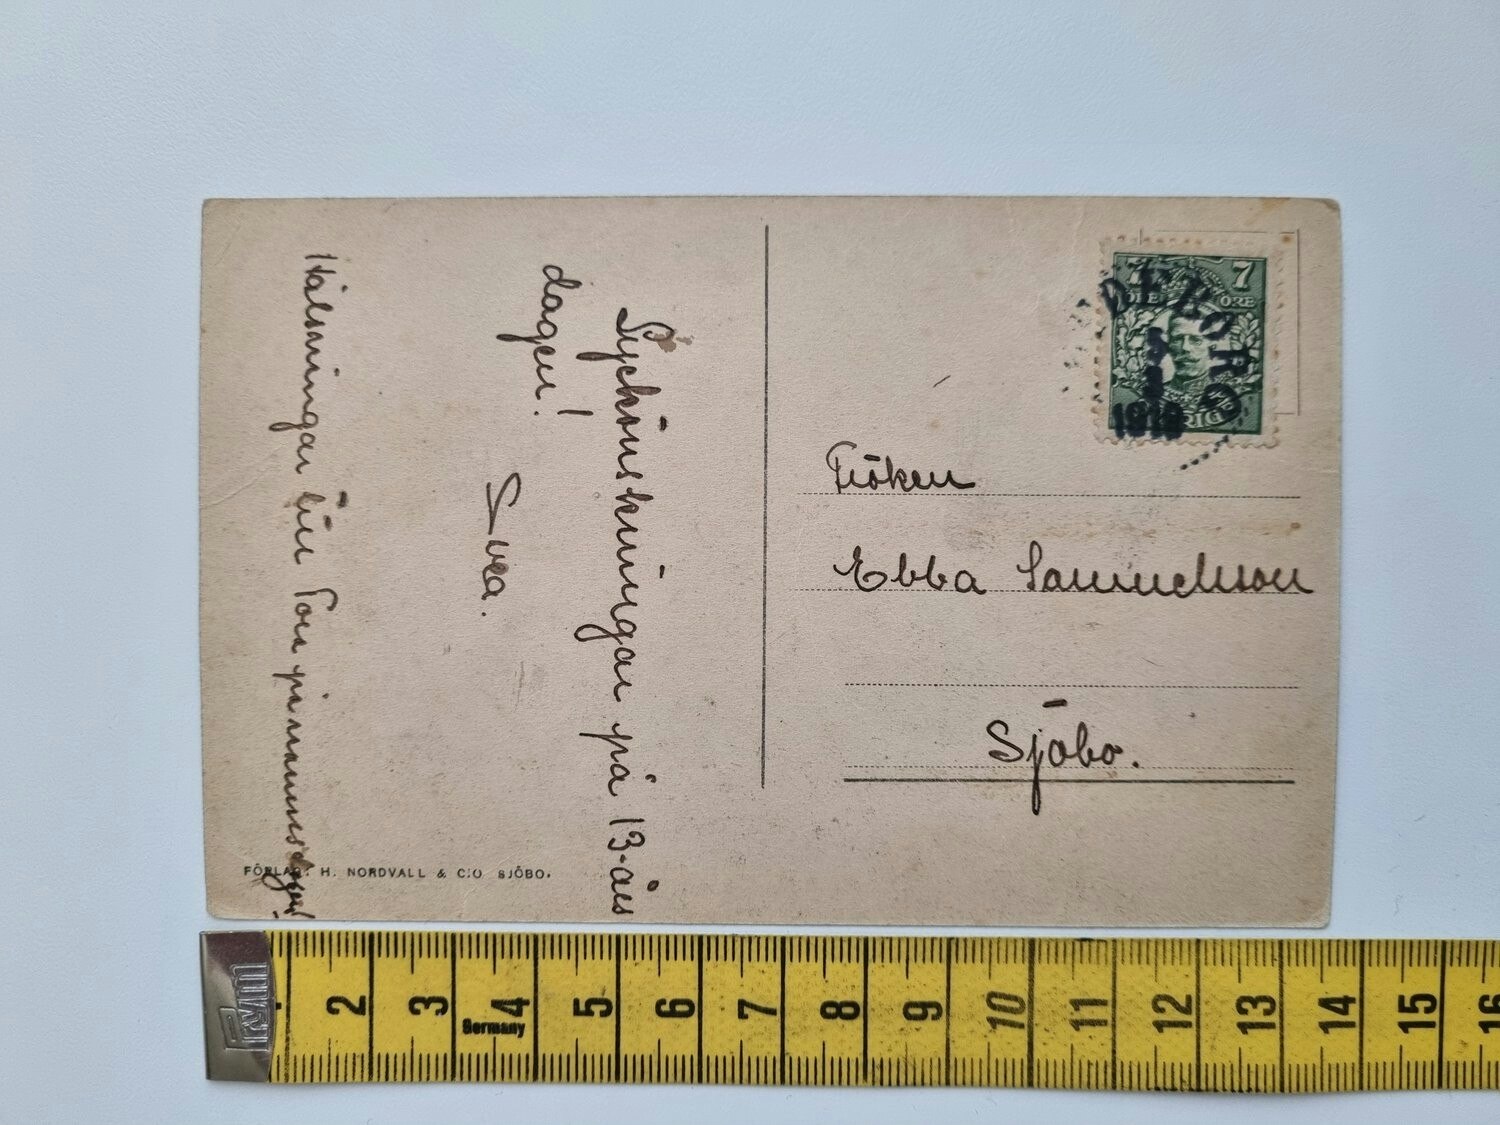 Lyckönskningar på 13-års
dagen!
Svea.
Hälsningar till Tora på namnsdagen!
FÖRLAG: H. NORDVALL & C:O SJÖBO.
7 7
ÖRE ÖRE
DEBORG
1918
Fröken
Ebba Samuelsson
Sjöbo.
Prym
2 3 4 5 6 7 8 9 10 11 12 13 14 15 16
Germany